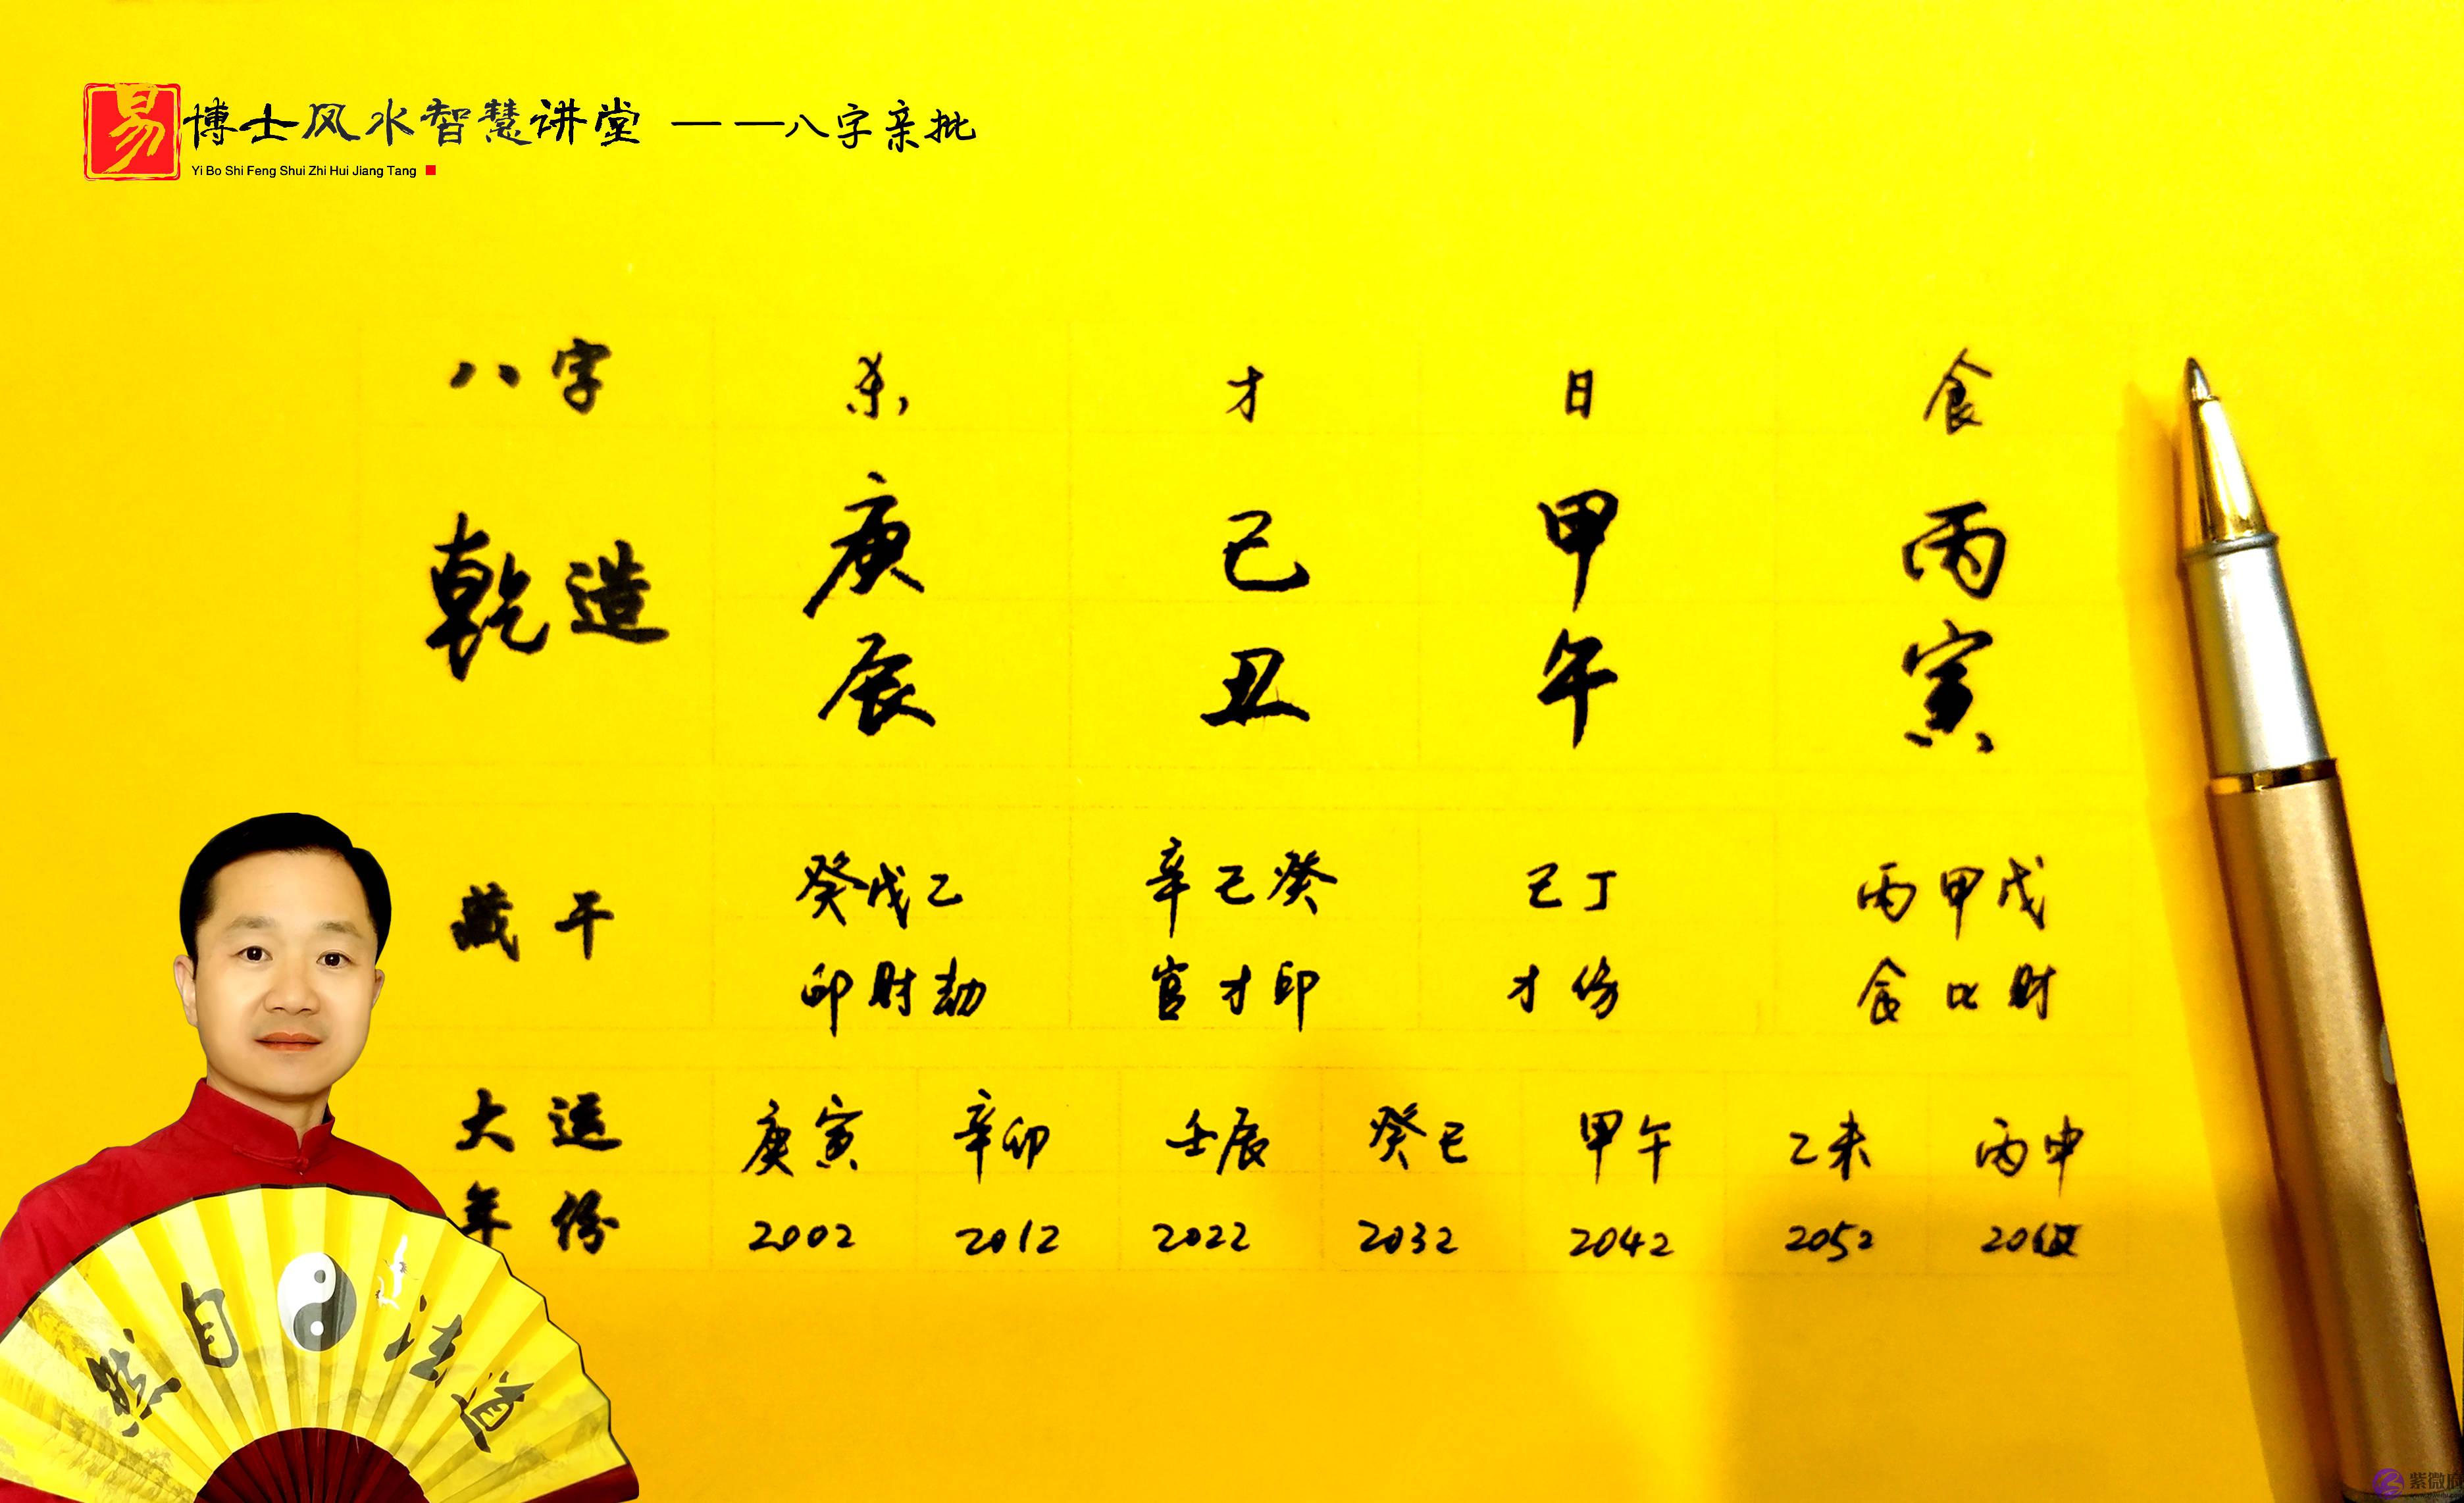 易博士风水智慧讲堂 ——八字亲批
Yi Bo Shi Feng Shui Zhi Hui Jiang Tang
八字 杀 才 日 食
乾造 庚 己 甲 丙
辰 丑 午 寅
藏干 癸戊乙 辛己癸 己丁 丙甲戊
印财劫 官才印 才伤 食比财
大运 庚寅 辛卯 壬辰 癸巳 甲午 乙未 丙申
年份 2002 2012 2022 2032 2042 2052
然自法道
紫微府